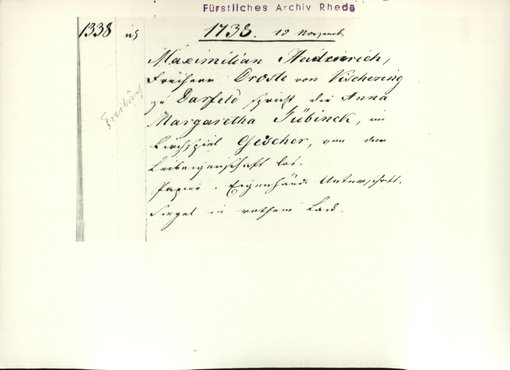 Fürstliches Archiv Rheda
1338 1738. 13 Novemb.
Maximilian Heidenrich,
Freiherr Droste von Vischering
zu Darfeld spricht die Anna
Margaretha Jübinck, im
Kirchspiel Gescher, von der
Leibeigenschaft los.
Papier. Eigenhänd. Unterschrift.
Siegel in rothem Lack.
Freibrief